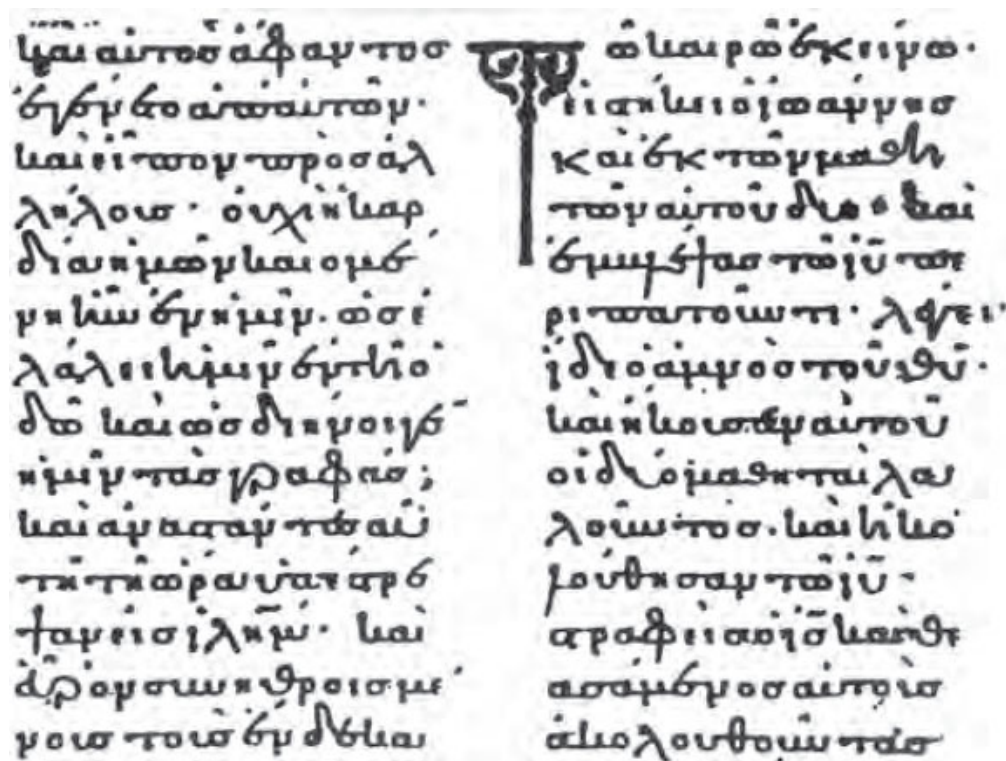 καὶ αὐτὸς ἄφαντος
ἐγένετο ἀπ' αὐτῶν·
καὶ εἶπον πρὸς ἀλ
λήλους· οὐχὶ ἡ καρ
δία ἡμῶν καιομέ
νη ἦν ἐν ἡμῖν· ὡς ἐ
λάλει ἡμῖν ἐν τῆ ὁ
δῶ καὶ ὡς διήνοιγε
ἡμῖν τὰς γραφάς;
καὶ ἀναστάντες αὐ
τῆ τῆ ὥρα ὑπέστρε
ψαν εἰς ἰλῆμ· καὶ
εὗρον συνηθροισμέ
νους τοὺς ἕνδεκα
Τῶ καιρῶ ἐκείνω·
εἱστήκει ὁ ἰωάννης
καὶ ἐκ τῶν μαθη
τῶν αὐτοῦ δύο· καὶ
ἐμβλέψας τῶ ἰῦ πε
ριπατοῦντι· λέγει·
ἴδε ὁ ἀμνὸς τοῦ θῦ·
καὶ ἤκουσαν αὐτοῦ
οἱ δύο μαθηταὶ λα
λοῦντος· καὶ ἠκο
λούθησαν τῶ ἰῦ·
στραφεὶς ὁ ἰς καὶ θε
ασάμενος αὐτοὺς
ἀκολουθοῦντας